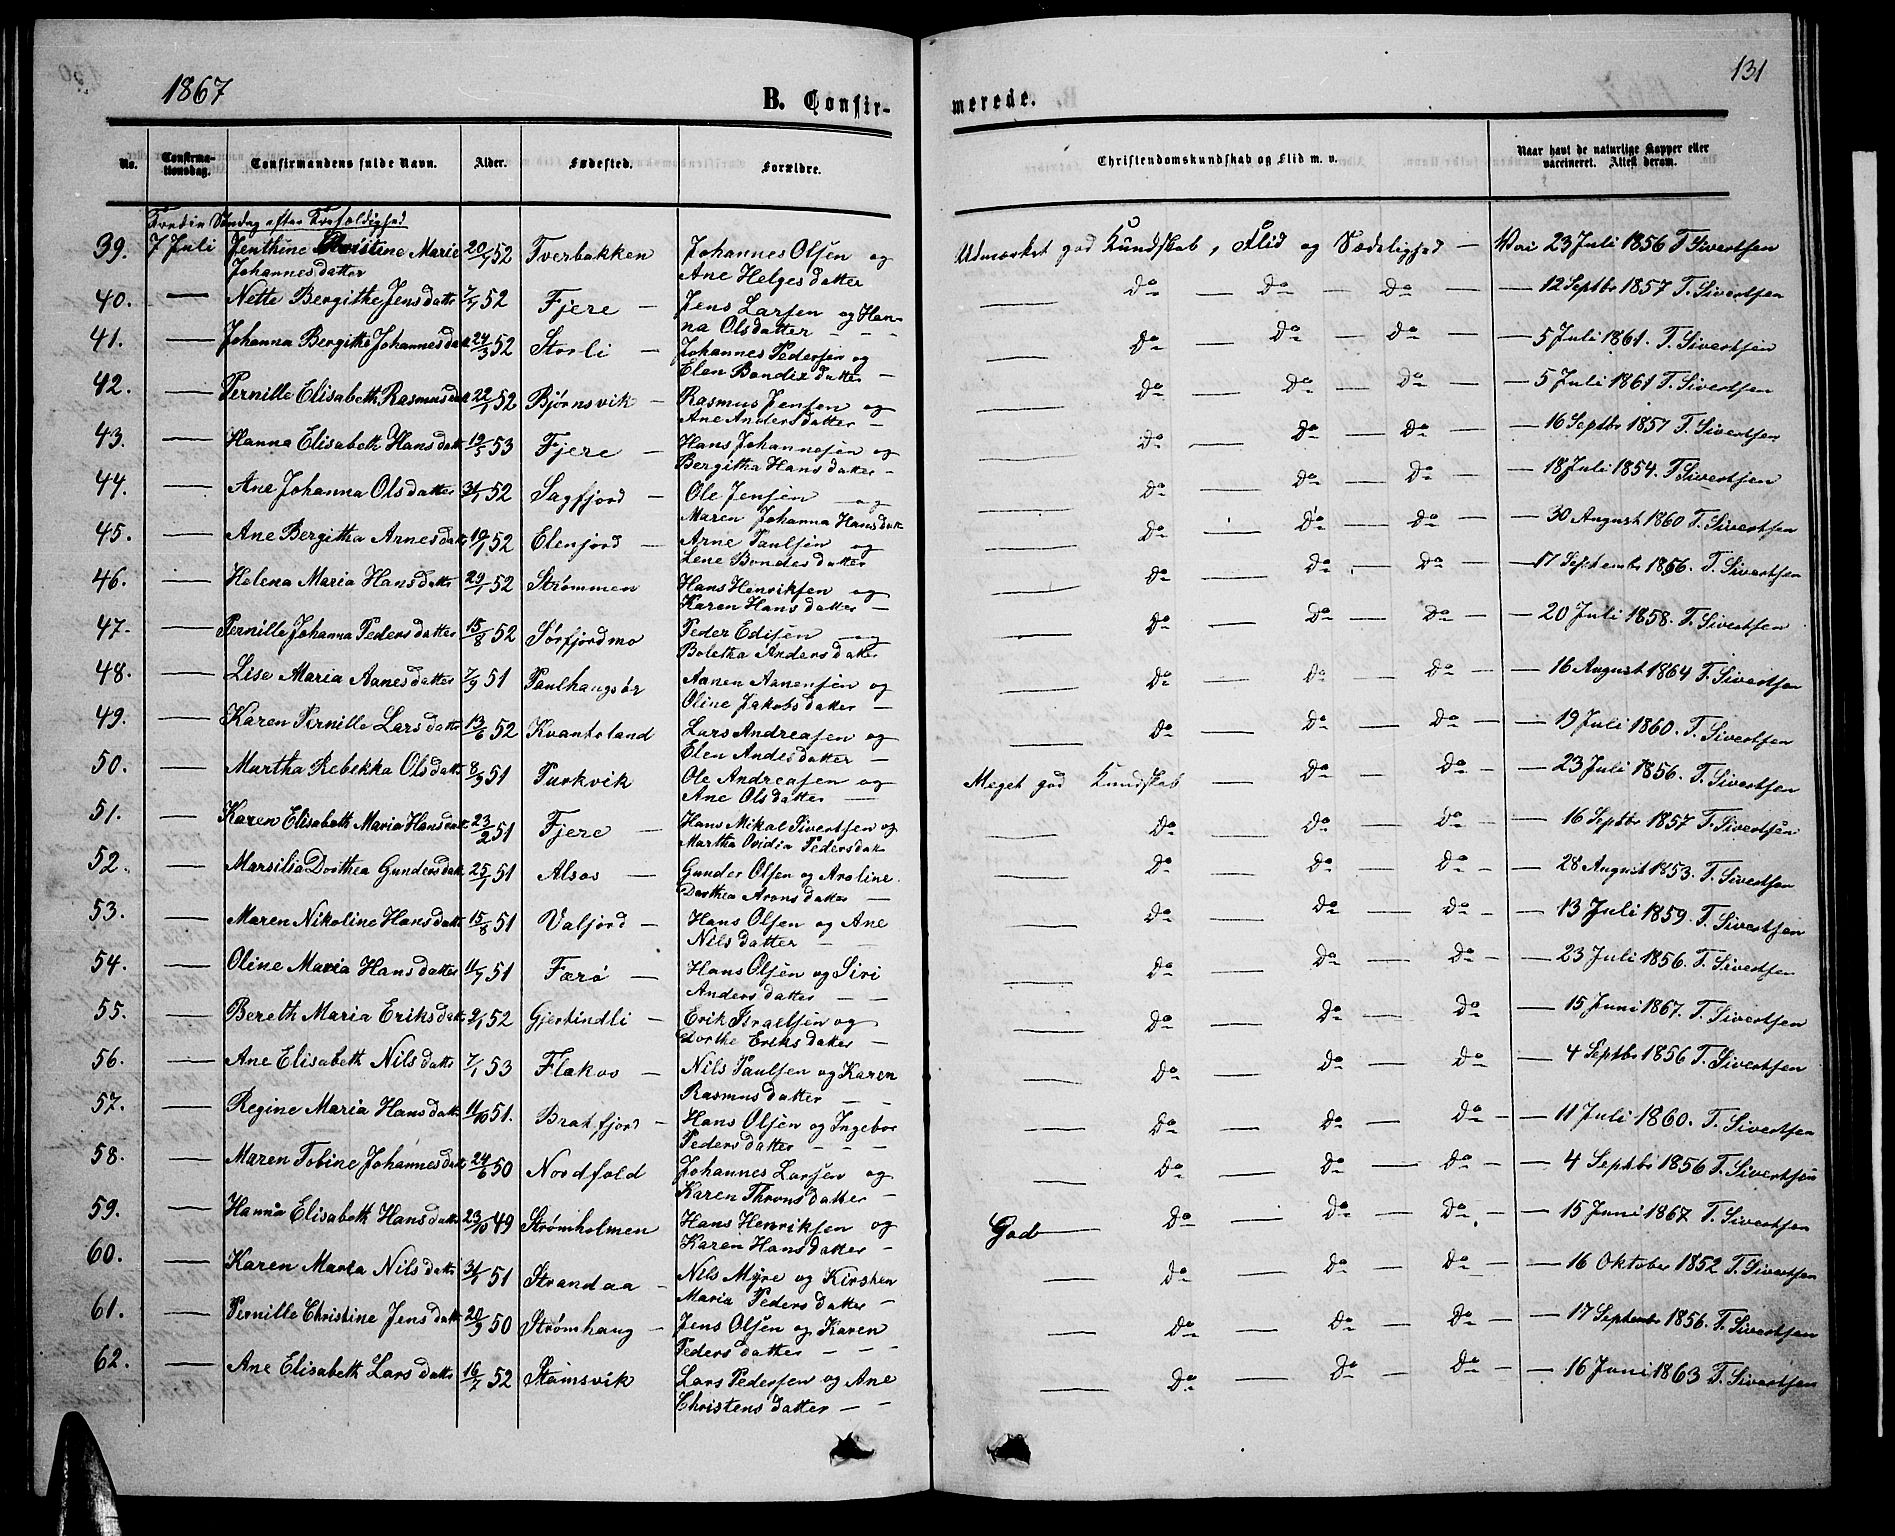 1867
131
B. Confirmerede.
No.
Confirmationsdag.
Confirmandens fulde Navn.
Alder.
Fødested.
Forældre.
Christendomskundskab og Flid m. v.
Naar havt de naturlige Kopper eller vaccineret. Attest derom.
Søndag efter Trefoldighed
39. 7 Juli Jenthine Christine Marie Johannesdatter 52 Tverbakken Johannes Olsen og Ane Helgesdatter Udmærket god Kundskab, Flid og Sædelighed — 23 Juli 1856 T. Sivertsen
40. — Nette Bergithe Jensdatter 52 Fjere — Jens Larsen og Hanna Olsdatter — Do — Do — Do — 12 Septbr 1857 T. Sivertsen
41. — Johanna Bergithe Johannesdatt 24/3 52 Storli — Johannes Pedersen og Elen Bendixdatter — Do Do — Do — 5 Juli 1861. T. Sivertsen
42. — Pernille Elisabeth Rasmusdatt 22/1 52 Bjørnsvik — Rasmus Jensen og Ane Andersdatter — Do Do — Do — 5 Juli 1861 T. Sivertsen
43. — Hanna Elisabeth Hansdatt 53 Fjere — Hans Johannesen og Bergitha Hansdatter — Do — Do — Do — 16 Septbr 1857 T. Sivertsen
44. — Ane Johanna Olsdatter 52 Sagfjord — Ole Jensen og Maren Johanna Hansdatt — Do Do — Do — 18 Juli 1854. T. Sivertsen
45. — Ane Bergitha Arnesdatt 52 Elenfjord — Arne Paulsen og Lene Bondesdatter — Do Do — Do — 30 August 1860 T. Sivertsen
46. — Helena Maria Hansdatter 29/1 52 Strømmen Hans Henriksen og Karen Hansdatter — Do — Do — Do — 17 September 1856. T. Sivertsen
47. — Pernille Johanna Pedersdatter 15/8 52 Sørfjordmo Peder Edisen og Boletha Andersdatter — Do — Do — Do — 20 Juli 1858. T. Sivertsen
48. — Lise Maria Aanesdatter 7/9 51 Paulhaugsør Aanen Aanensen og Oline Jakobsdatter — Do — Do — Do — 16 August 1864 T. Sivertsen
49. — Karen Pernille Larsdatter 13/6 52 Kvantoland Lars Andreasen og Elen Andersdatter — Do — Do — Do — 19 Juli 1860. T. Sivertsen
50. — Martha Rebekka Olsdatt 8/9 51 Purkvik Ole Andreasen og Ane Olsdatter — Meget god Kundskab — Do — Do — 23 Juli 1856. T. Sivertsen
51. — Karen Elisabeth Maria Hansdatt 23/2 51 Fjere — Hans Mikal Sivertsen og Martha Ovidia Pedersdatt — Do — Do — Do — 16 Septbr 1857 T. Sivertsen
52. — Marsilia Dorthea Gundersdatt 25/1 51 Alsos — Gunder Olsen og Aroline Dorthea Aronsdatter — Do — Do — Do — 28 August 1853. T. Sivertsen
53. — Maren Nikoline Hansdatt 15/8 51 Valjord — Hans Olsen og Ane Nilsdatter — Do — Do — Do — 13 Juli 1859. T. Sivertsen
54. — Oline Maria Hansdatter 51 Færø — Hans Olsen og Siri Andersdatter — Do — Do — Do — 23 Juli 1856. T. Sivertsen
55. — Bereth Maria Eriksdatt 2/1 52 Gjertindli — Erik Israelsen og Dorthe Eriksdatter — Do — Do — Do — 15 Juni 1867. T. Sivertsen
56. — Ane Elisabeth Nilsdatt 7/1 53 Flakos — Nils Paulsen og Karen Rasmusdatter — Do — Do — Do — 4 Septbr 1856 T. Sivertsen
57. — Regine Maria Hansdatt 11/10 51. Bratfjord — Hans Olsen og Ingebor Pedersdatter — Do — Do — Do — 11 Juli 1860. T. Sivertsen
58. — Maren Tobine Johannesdatt 24/6 50 Nordfold Johannes Larsen og Karen Thronsdatter — Do — Do — Do — 4 Septbr 1856 T. Sivertsen
59. — Hanna Elisabeth Hansdatt 23/10 49 Strømholmen Hans Henriksen og Karen Hansdatter — God — Do — Do — Do — 15 Juni 1867 T. Sivertsen
60. — Karen Maria Nilsdatt 51 Strandaa — Nils Myre og Kirsten Maria Pedersdatter — Do — Do — Do — 16 Oktober 1852 T. Sivertsen
61. — Pernille Christine Jensdatt 20/9 50 Strømhaug — Jens Olsen og Karen Pedersdatter — Do — Do — Do — 17 September 1856. T. Sivertsen
62. — Ane Elisabeth Larsdatt 16/7 52 Stamsvik Lars Pedersen og Ane Christensdatter — Do — Do — Do — 16 Juni 1863 T. Sivertsen